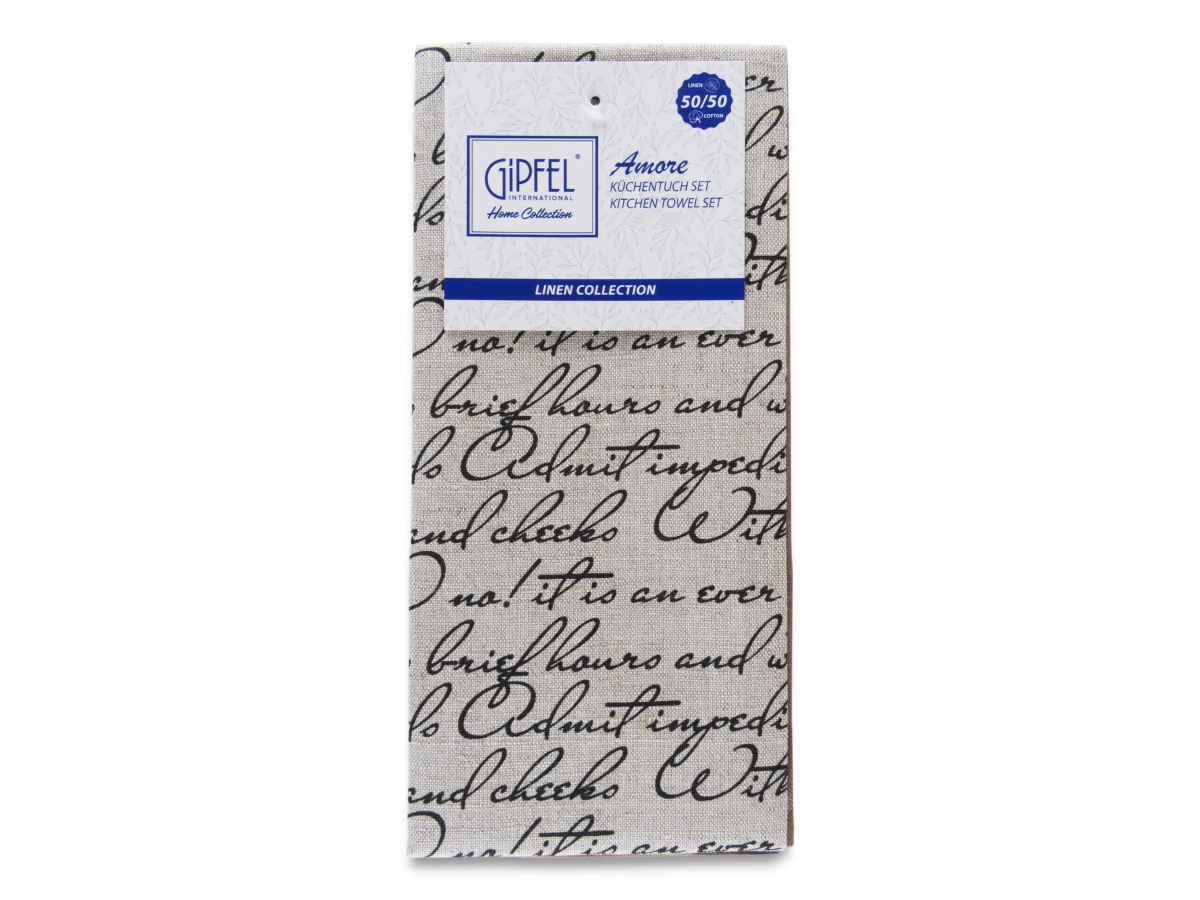 er
LINEN
50/50
COTTON
GiPFEL®
INTERNATIONAL
Home Collection
Amore
KÜCHENTUCH SET
KITCHEN TOWEL SET
LINEN COLLECTION
w
ls
pedi
With
O no! it is an ever
brief hours and w
ls Admit impedi
and cheeks With
O no! it is an ever
brief hours and w
ls Admit impedi
and cheeks With
O no! it is an ever